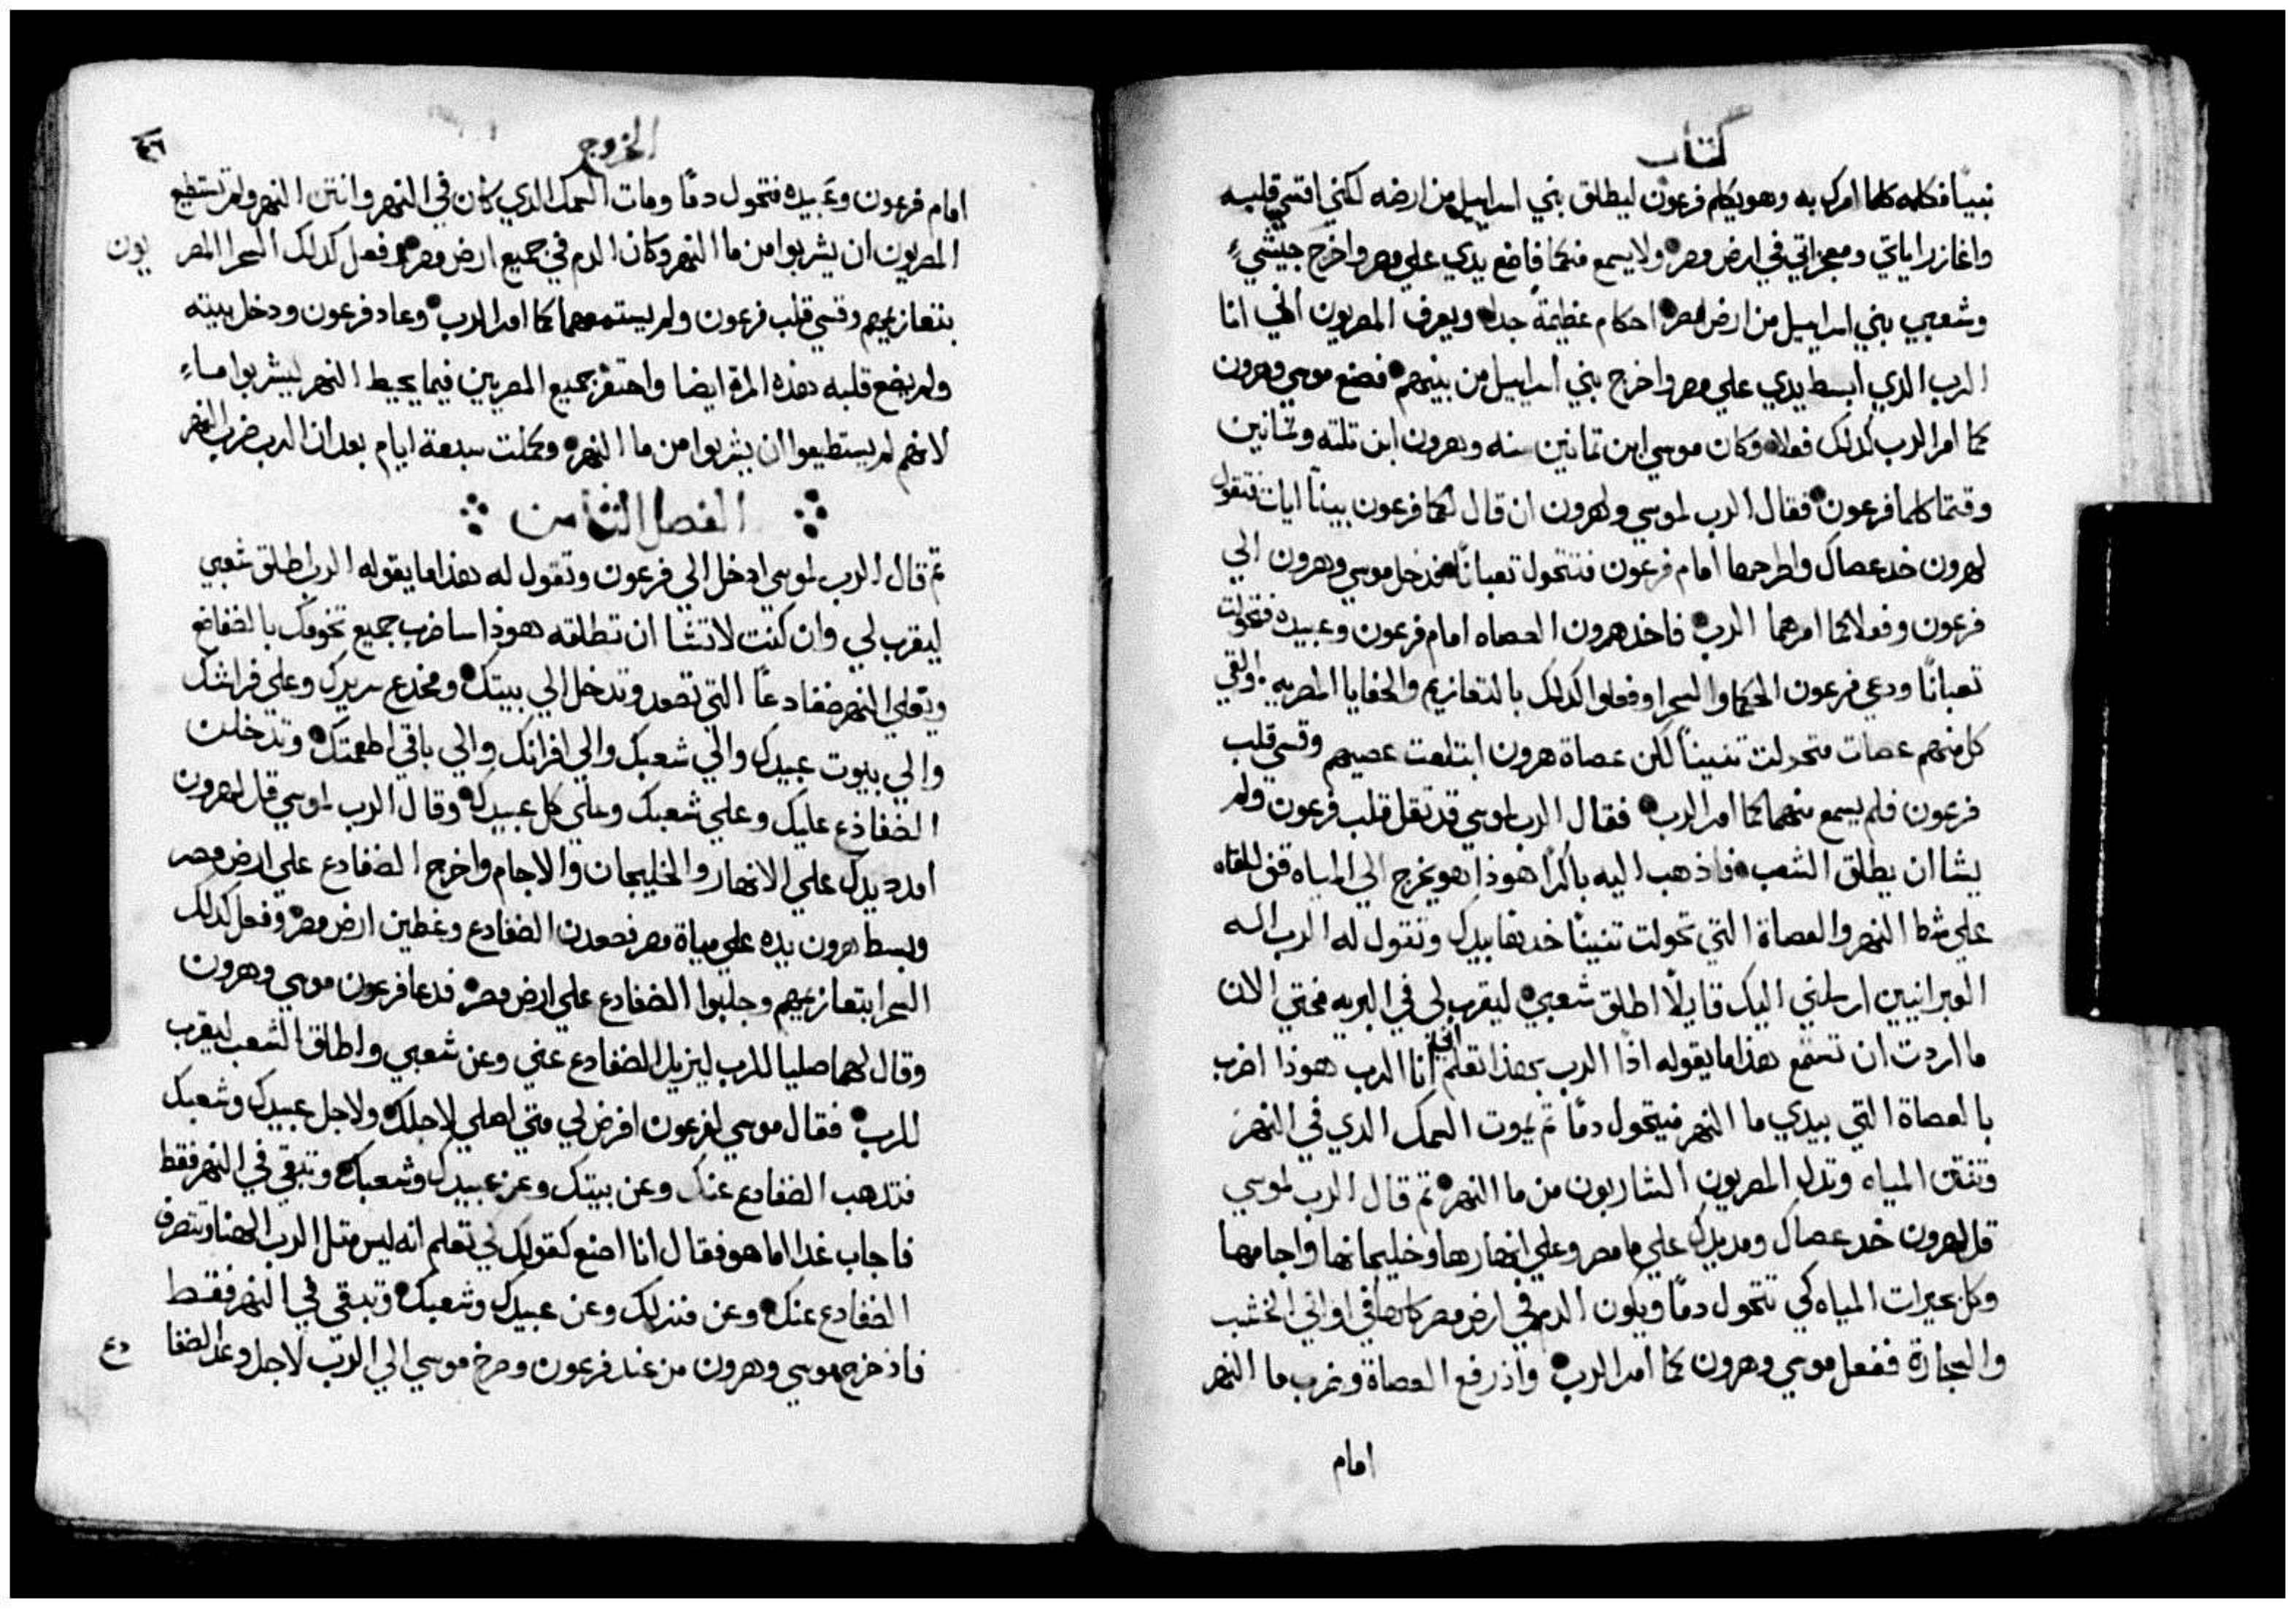 كتاب
نبيًا فكلمه كلما امرك به وهو يكلم فرعون ليطلق بني اسراييل من ارضه لكني اقسي قلبه
واغازر اياتي ومعجزاتي في ارض مصر ولا يسمع منكما فاضع يدي علي مصر واخرج جيشيِ
وشعبي بني اسراييل من ارض مصر احكام عظيمة جدا ويعرف المصريون اني انا
الرب الدي ابسط يدي علي مصر واخرج بني اسراييل من بينهم فصنع موسي وهرون
كما امر الرب كدلك فعلا وكان موسي ابن تمانين سنه وهرون ابن تلته وتمانين
وقتما كلما فرعون فقال الرب لموسي ولهرون ان قال لكما فرعون بينا ايات فتقول
لهرون خد عصاك واطرحها امام فرعون فتتحول تعبانًا فدخل موسي وهرون الي
فرعون وفعلا كما امرهما الرب فاخد هرون العصاه امام فرعون وعبيده فتحولت
تعبانًا ودعي فرعون الحكما والسحرا وفعلوا كدلك بالتعازيم والخفايا المصريه والقي
كل منهم عصات فتحولت تنينًا لكن عصاة هرون ابتلعت عصيهم وقسي قلب
فرعون فلم يسمع منهما كما امر الرب فقال الرب لموسي قد تقل قلب فرعون ولم
يشا ان يطلق الشعب فادهب اليه باكرًا هودا هو يخرج الي المياه قف للقاه
علي شط النهر والعصاة التي تحولت تنينًا خدها بيدك وتقول له الرب اله
العبرانيين ارسلني اليك قايلًا اطلق شعبي ليقرب لي في البريه فحتي الان
ما اردت ان تستمع هدا ما يقوله ادًا الرب بهدا تعلم اني انا الرب هودا اضرب
بالعصاة التي بيدي ما النهر فيتحول دمًا تم يموت السمك الدي في النهر
وتنتن المياه وتدل المصريون الشاربون من ما النهر تم قال الرب لموسي
قل لهرون خد عصاك ومد يدك علي ما مصر وعلي انهارها وخليجانها واجامها
وكل بحيرات المياه كي تتحول دمًا ويكون الدم في ارض مصر كلها في اواني الخشب
والحجارة ففعل موسي وهرون كما امر الرب واد رفع العصاة وضرب ما النهر
امام
الخروج
٤٦
امام فرعون وعبيده فتحول دمًا ومات السمك الدي كان في النهر وانتن النهر ولم تستطع
المصريون ان يشربوا من ما النهر وكان الدم في جميع ارض مصر وفعل كدلك السحرا المصر يون
بتعازيمهم وقسي قلب فرعون ولم يستمعهما كما امر الرب وعاد فرعون ودخل بيته
ولم يضع قلبه هده المرة ايضا واحتفر جميع المصريين فيما يحيط النهر ليشربوا ماءِ
لانهم لم يستطيعوا ان يشربوا من ما النهر وكملت سبعة ايام بعد ان الرب ضرب النهر
الفصل التامن
تم قال الرب لموسي ادخل الي فرعون وتقول له هدا ما يقوله الرب اطلق شعبي
ليقرب لي وان كنت لا تشا ان تطلقه هودا ساضرب جميع تخومك بالضفاضع
ويغلي النهر ضفادعًا التي تصعد وتدخل الي بيتك ومخدع سريرك وعلي فراشك
والي بيوت عبيدك والي شعبك والي افرانك والي باقي اطعمتك وتدخلن
الضفادع عليك وعلي شعبك وعلي كل عبيدك وقال الرب لموسي قل لهرون
امدد يدك علي الانهار والخليجان والاجام واخرج الضفادع علي ارض مصر
وبسط هرون يده علي مياة مصر فصعدن الضفادع وغطين ارض مصر وفعل كدلك
السحرا بتعازيمهم وجلبوا الضفادع علي ارض مصر فدعا فرعون موسي وهرون
وقال لهما صليا للرب ليزيل الضفادع عني وعن شعبي واطلق الشعب ليقرب
للرب فقال موسي لفرعون افرض لي متي اصلي لاجلك ولاجل عبيدك وشعبك
فتدهب الضفادع عنك وعن بيتك وعن عبيدك وشعبك وتبقي في النهر فقط
فاجاب غدا اما هو فقال انا اصنع كقولك لكي تعلم انه ليس متل الرب الهنا وتنصرف
الضفادع عنك وعن منزلك وعن عبيدك وشعبك وتبقي في النهر فقط
فاد خرج موسي وهرون من عند فرعون وصرخ موسي الي الرب لاجل وعد الضفا دع